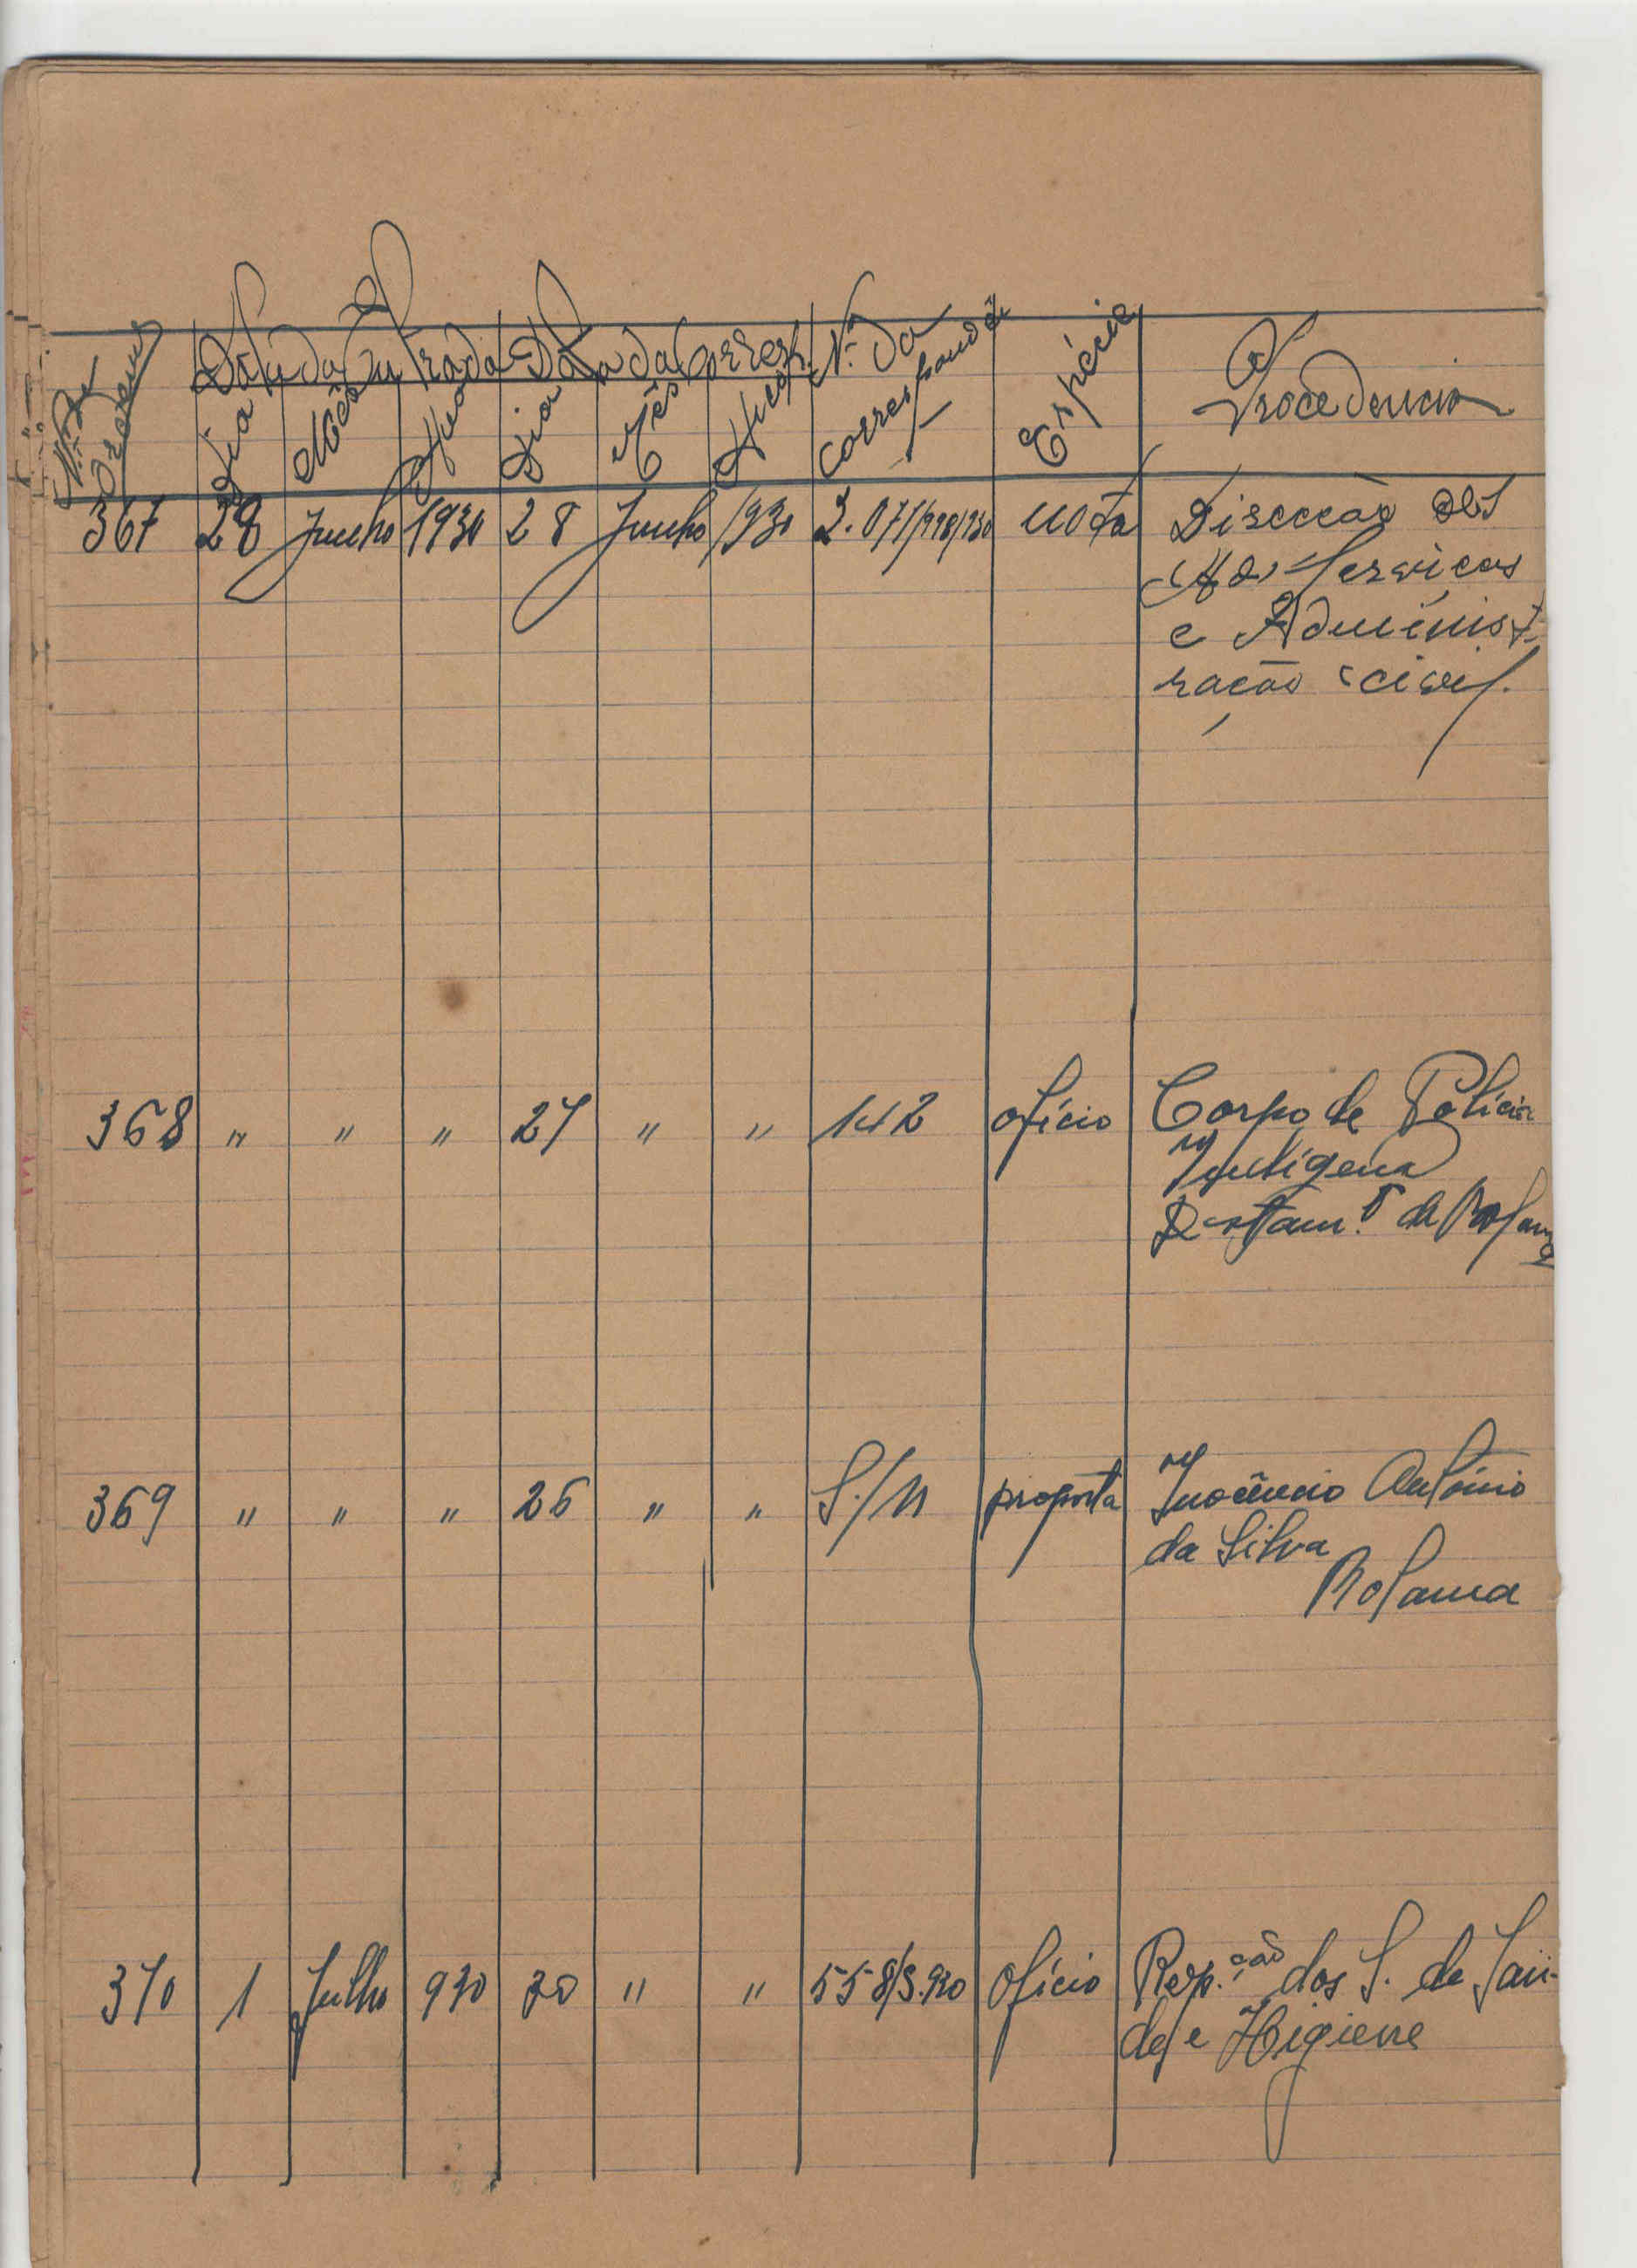 Nº de Ordem Data da Entrada Data da Corresp. Nº da correspondê Espécie Procedencia
Dia Mês Ano Dia Mês Ano
367 28 Junho 1930 28 Junho 1930 2.071/998/930 nota Direcção dos
Serviços
e Administ
ração civil.
368 " " " 27 " " 142 ofício Corpo de Polícia
Indígena
Destam.º de Bolama
369 " " " 26 " " S./n proposta Inocêncio António
da Silva
Bolama
370 1 Julho 930 30 " " 558/S.930 Ofício Rep.ção dos S. de Saú-
de e Higiene